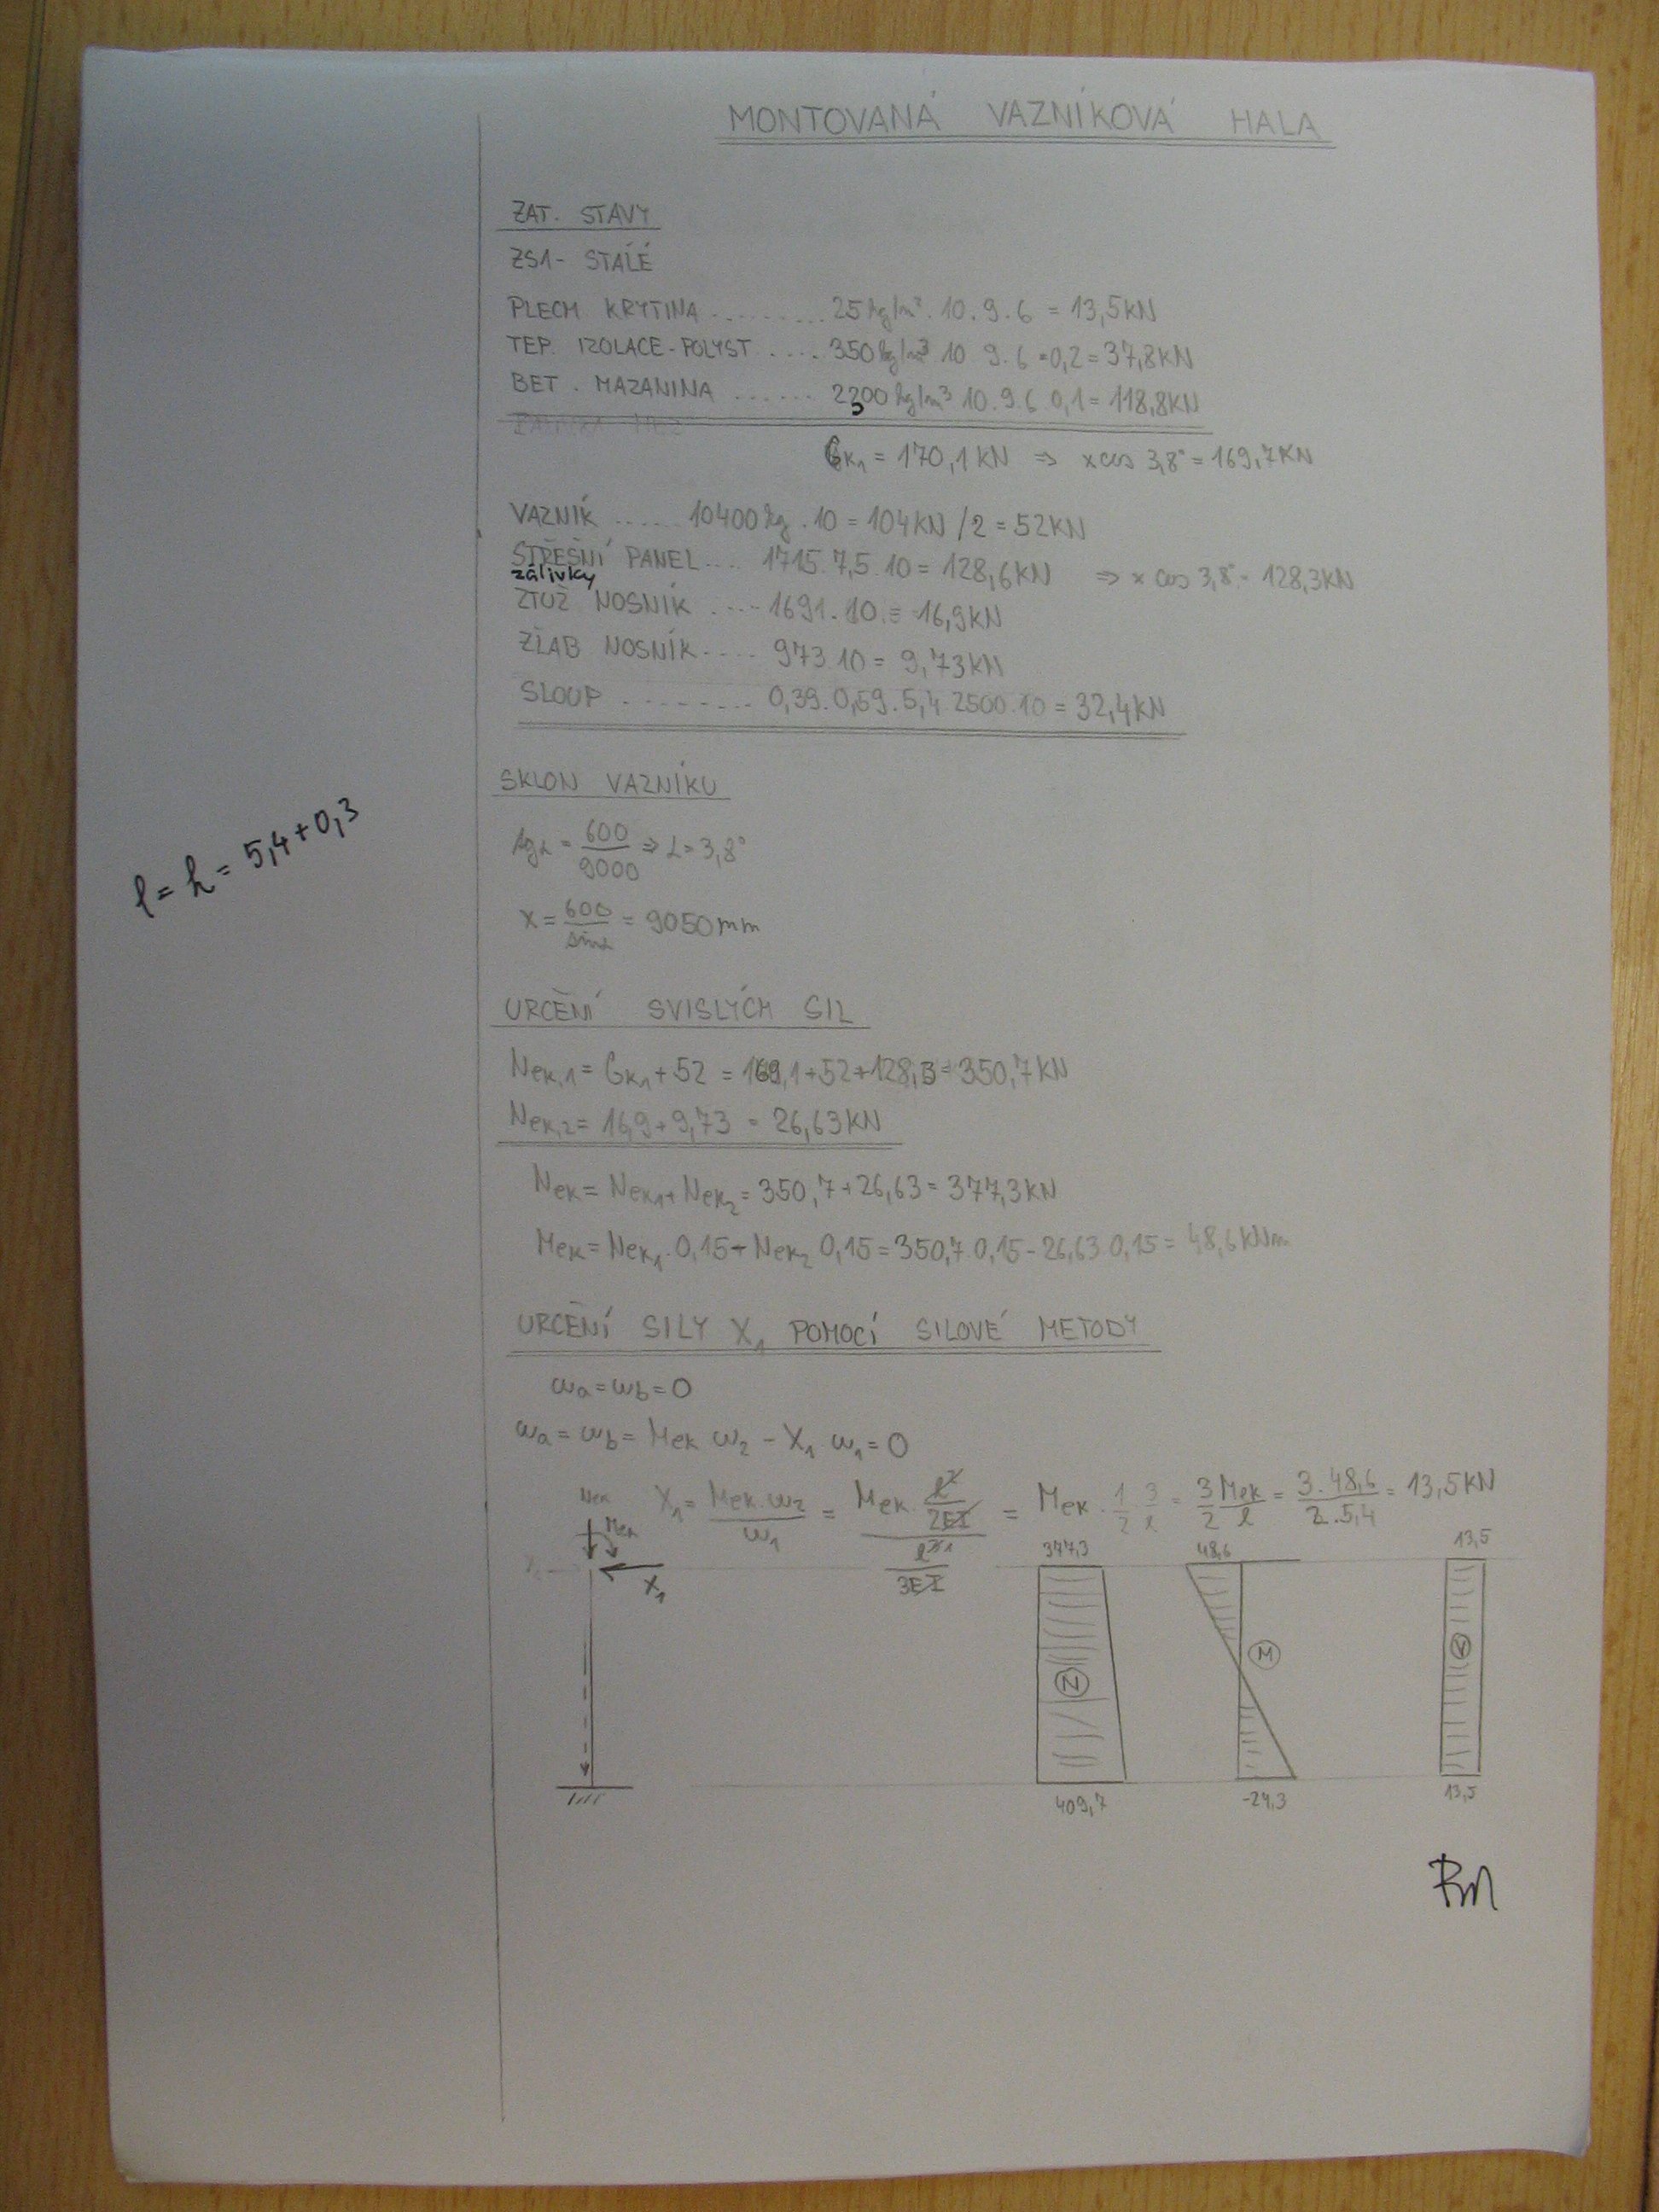 MONTOVANÁ VAZNÍKOVÁ HALA
ZAT. STAVY
ZS1- STÁLÉ
PLECH. KRYTINA ......... 25kg/m² . 10 . 9 . 6 = 13,5kN
TEP. IZOLACE-POLYST .... 350kg/m³ 10 9 . 6 . 0,2 = 37,8kN
BET. MAZANINA ...... 2300kg/m³ 10 . 9 . 6 0,1 = 118,8kN
GK1 = 170,1kN ⇒ x cos 3,8° = 169,7kN
VAZNÍK ..... 10400kg . 10 = 104kN /2 = 52kN
STŘEŠNÍ PANEL .... 1715 . 7,5 . 10 = 128,6kN ⇒ x cos 3,8° = 128,3kN
zálivky
ZTUŽ NOSNÍK .... 1691 . 10 = 16,9kN
ŽLAB NOSNÍK .... 973 . 10 = 9,73kN
SLOUP ........ 0,39 . 0,59 . 5,4 . 2500 . 10 = 32,4kN
SKLON VAZNÍKU
tg α = 600/9000 ⇒ α = 3,8°
l = h = 5,4+0,3
x = 600/sin α = 9050mm
URČENÍ SVISLÝCH SIL
Nek,1 = GK1 + 52 = 169,1 + 52 + 128,3 = 350,7kN
Nek,2 = 16,9 + 9,73 = 26,63kN
Nek = Nek1 + Nek2 = 350,7 + 26,63 = 377,3kN
Mek = Nek1 . 0,15 - Nek2 0,15 = 350,7 . 0,15 - 26,63 . 0,15 = 48,6kNm
URČENÍ SÍLY X1 POMOCÍ SILOVÉ METODY
ωa = ωb = 0
ωa = ωb = Mek ω2 - X1 ω1 = 0
X1 = Mek . ω2/ω1 = Mek . l²/2EI / l³/3EI = Mek . 1/2 3/l = 3/2 Mek/l = 3 . 48,6/2 . 5,4 = 13,5kN
Nek
Mek
X1
377,3 48,6 13,5
N M V
409,7 -24,3 13,5